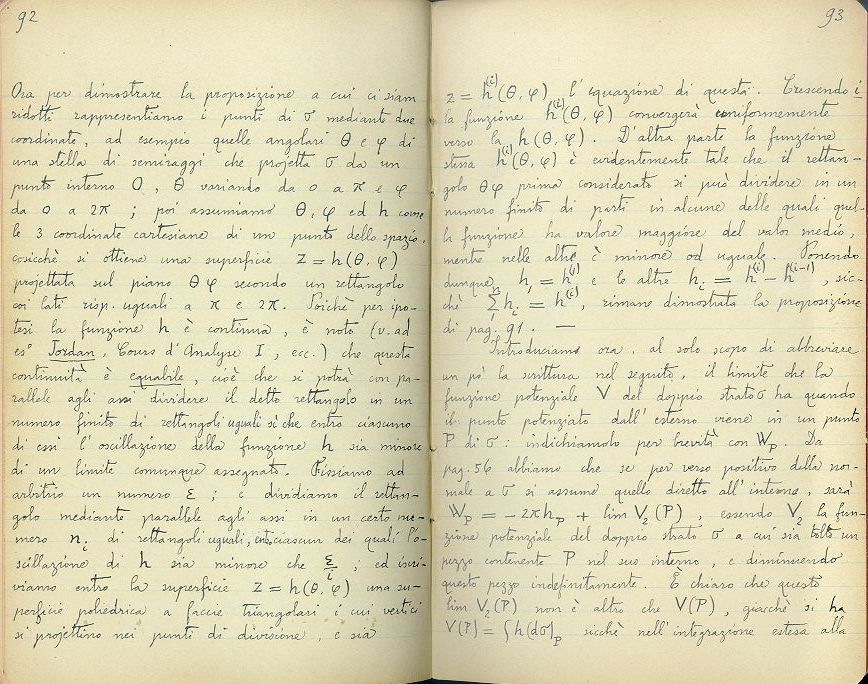 92
Ora per dimostrare la proposizione a cui ci siam
ridotti rappresentiamo i punti di σ mediante due
coordinate, ad esempio quelle angolari θ e φ di
una stella di semiraggi che projetta σ da un
punto interno O, θ variando da 0 a π e φ
da 0 a 2π ; poi assumiamo θ, φ ed h come
le 3 coordinate cartesiane di un punto dello spazio,
cosicchè si ottiene una superficie z = h(θ, φ)
projettata sul piano θφ secondo un rettangolo
coi lati risp. uguali a π e 2π. Poichè per ipo-
tesi la funzione h è continua, è noto (v. ad
es° Jordan, Cours d'Analyse I, ecc.) che questa
continuità è equabile, cioè che si potrà con pa-
rallele agli assi dividere il detto rettangolo in un
numero finito di rettangoli uguali sì che entro ciascuno
di essi l'oscillazione della funzione h sia minore
di un limite comunque assegnato. Fissiamo ad
arbitrio un numero ε ; e dividiamo il rettan-
golo mediante parallele agli assi in un certo nu-
mero nᵢ di rettangoli uguali, entro ciascun dei quali l'o-
scillazione di h sia minore che ε/i ; ed iscri-
viamo entro la superficie z = h(θ, φ) una su-
perficie poliedrica a faccie triangolari i cui vertici
si projettino nei punti di divisione, e sia
93
z = h⁽ⁱ⁾(θ, φ) l'equazione di questa. Crescendo i
la funzione h⁽ⁱ⁾(θ, φ) convergerà uniformemente
verso la h(θ, φ). D'altra parte la funzione
stessa h⁽ⁱ⁾(θ, φ) è evidentemente tale che il rettan-
golo θφ prima considerato si può dividere in un
numero finito di parti in alcune delle quali quel-
la funzione ha valore maggiore del valor medio,
mentre nelle altre è minore od uguale. Ponendo
dunque h₁ = h⁽¹⁾ e le altre hᵢ = h⁽ⁱ⁾ − h⁽ⁱ⁻¹⁾, sic-
chè Σhᵢ = h⁽ⁱ⁾, rimane dimostrata la proposizione
di pag. 91. —
Introduciamo ora, al solo scopo di abbreviare
un pò la scrittura nel seguito, il limite che la
funzione potenziale V del doppio strato σ ha quando
il punto potenziato dall'esterno viene in un punto
P di σ : indichiamolo per brevità con W_P. Da
pag. 56 abbiamo che se per verso positivo della nor-
male a σ si assume quello diretto all'interno, sarà
W_P = −2πh_P + lim V₂(P), essendo V₂ la fun-
zione potenziale del doppio strato σ a cui sia tolto un
pezzo contenente P nel suo interno, e diminuendo
questo pezzo indefinitamente. È chiaro che questo
lim V₂(P) non è altro che V(P), giacchè si ha
V(P) = ∫h(dσ)_P sicchè nell'integrazione estesa alla